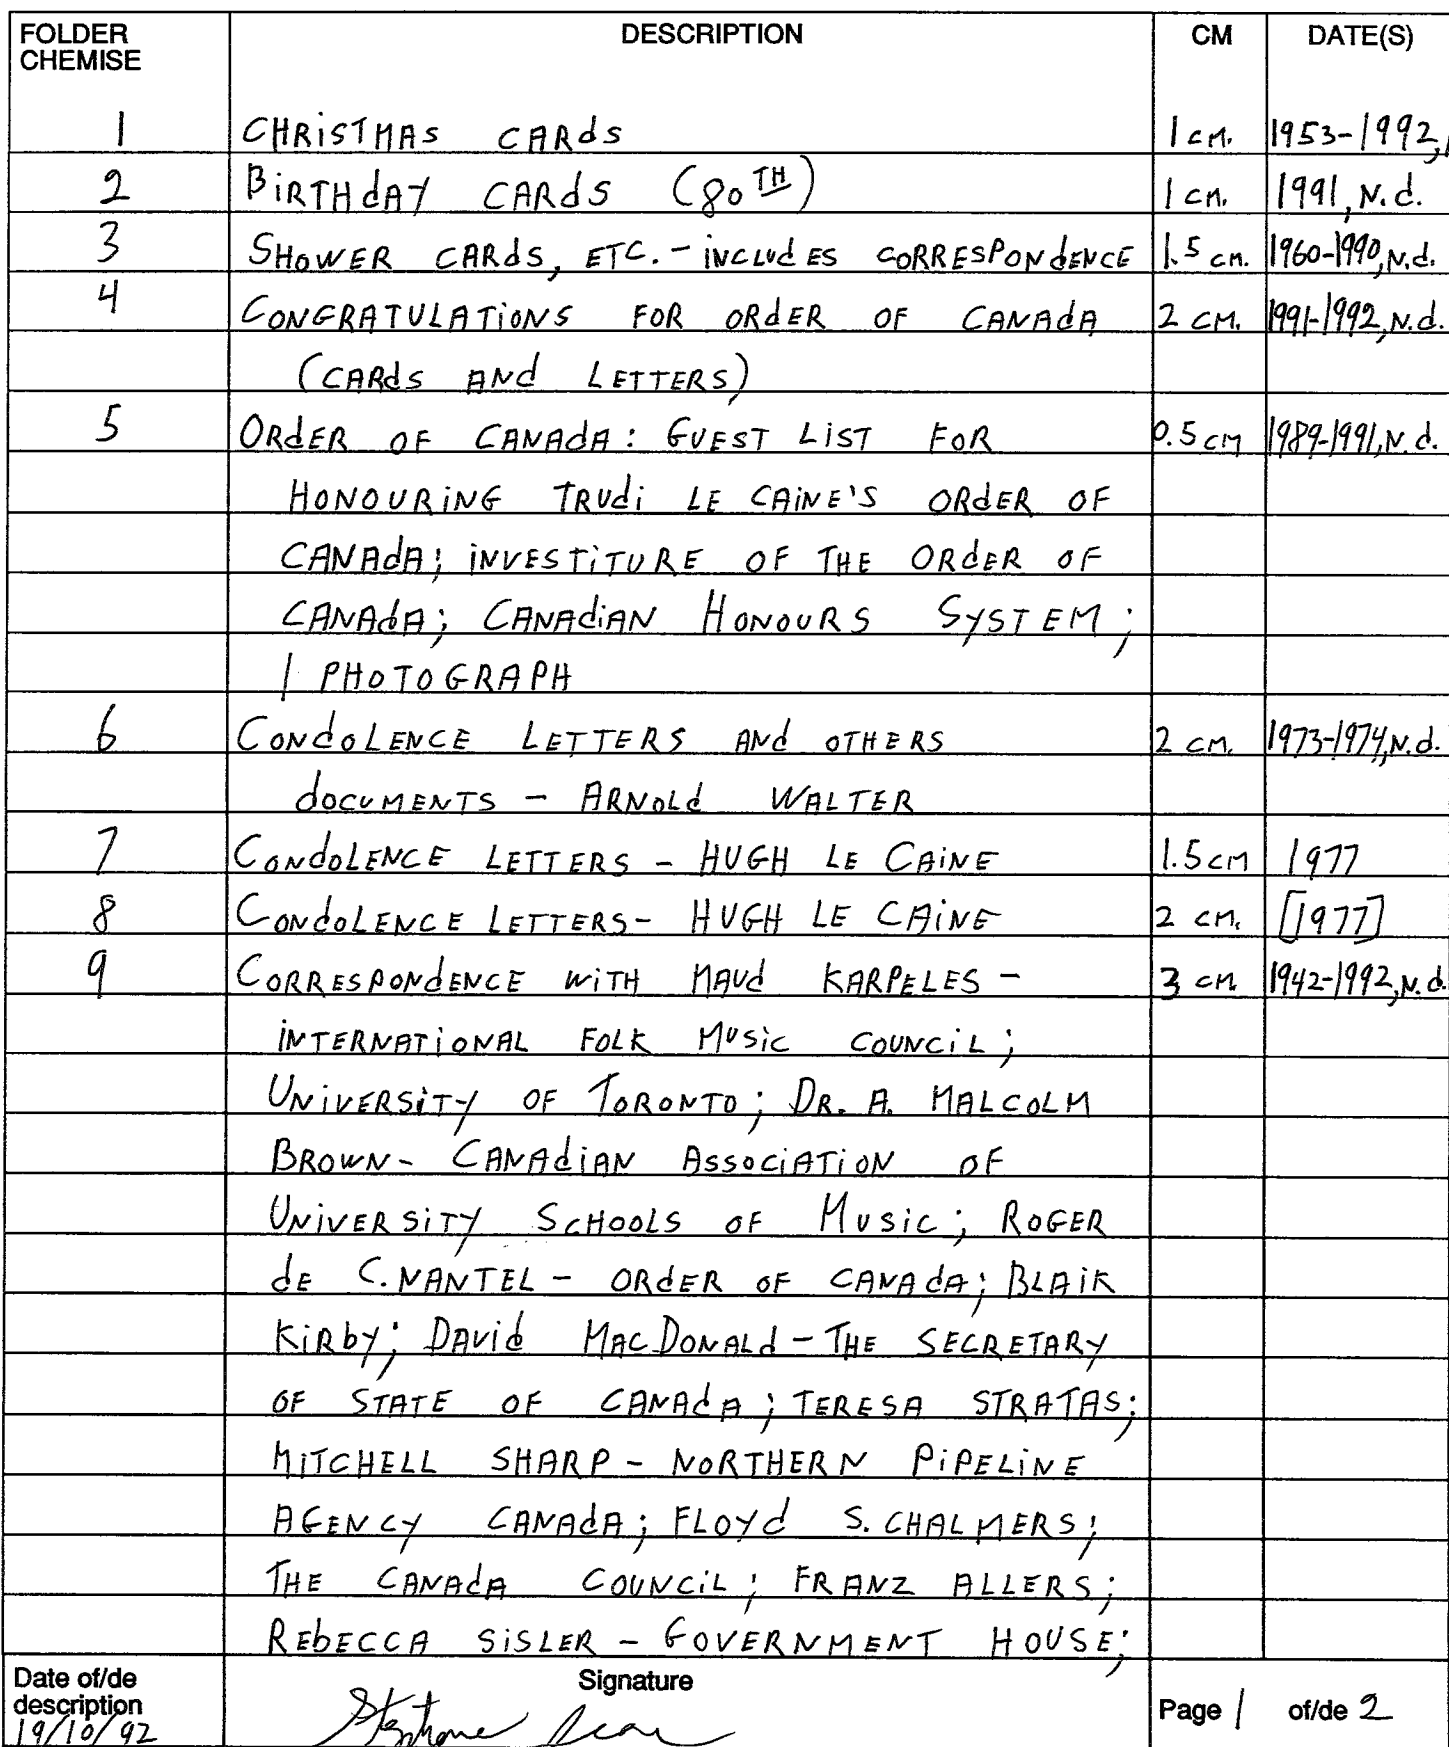 FOLDER CHEMISE DESCRIPTION CM DATE(S)
1 CHRISTMAS CARDS 1 CM. 1953-1992,
2 BIRTHDAY CARDS (80TH) 1 CM. 1991, N.d.
3 SHOWER CARDS, ETC. - INCLUDES CORRESPONDENCE 1.5 CM. 1960-1990, N.d.
4 CONGRATULATIONS FOR ORDER OF CANADA 2 CM. 1991-1992, N.d.
(CARDS AND LETTERS)
5 ORDER OF CANADA: GUEST LIST FOR 0.5 CM 1989-1991, N.d.
HONOURING TRUDI LE CAINE'S ORDER OF
CANADA; INVESTITURE OF THE ORDER OF
CANADA; CANADIAN HONOURS SYSTEM;
1 PHOTOGRAPH
6 CONDOLENCE LETTERS AND OTHERS 2 CM. 1973-1974, N.d.
DOCUMENTS - ARNOLD WALTER
7 CONDOLENCE LETTERS - HUGH LE CAINE 1.5 CM 1977
8 CONDOLENCE LETTERS - HUGH LE CAINE 2 CM. [1977]
9 CORRESPONDENCE WITH MAUD KARPELES - 3 CM. 1942-1992, N.d.
INTERNATIONAL FOLK MUSIC COUNCIL;
UNIVERSITY OF TORONTO; DR. A. MALCOLM
BROWN - CANADIAN ASSOCIATION OF
UNIVERSITY SCHOOLS OF MUSIC; ROGER
DE C. NANTEL - ORDER OF CANADA; BLAIK
KIRBY; DAVID MACDONALD - THE SECRETARY
OF STATE OF CANADA; TERESA STRATAS;
MITCHELL SHARP - NORTHERN PIPELINE
AGENCY CANADA; FLOYD S. CHALMERS;
THE CANADA COUNCIL; FRANZ ALLERS;
REBECCA SISLER - GOVERNMENT HOUSE;
Date of/de description 19/10/92 Signature Stephane Page 1 of/de 2